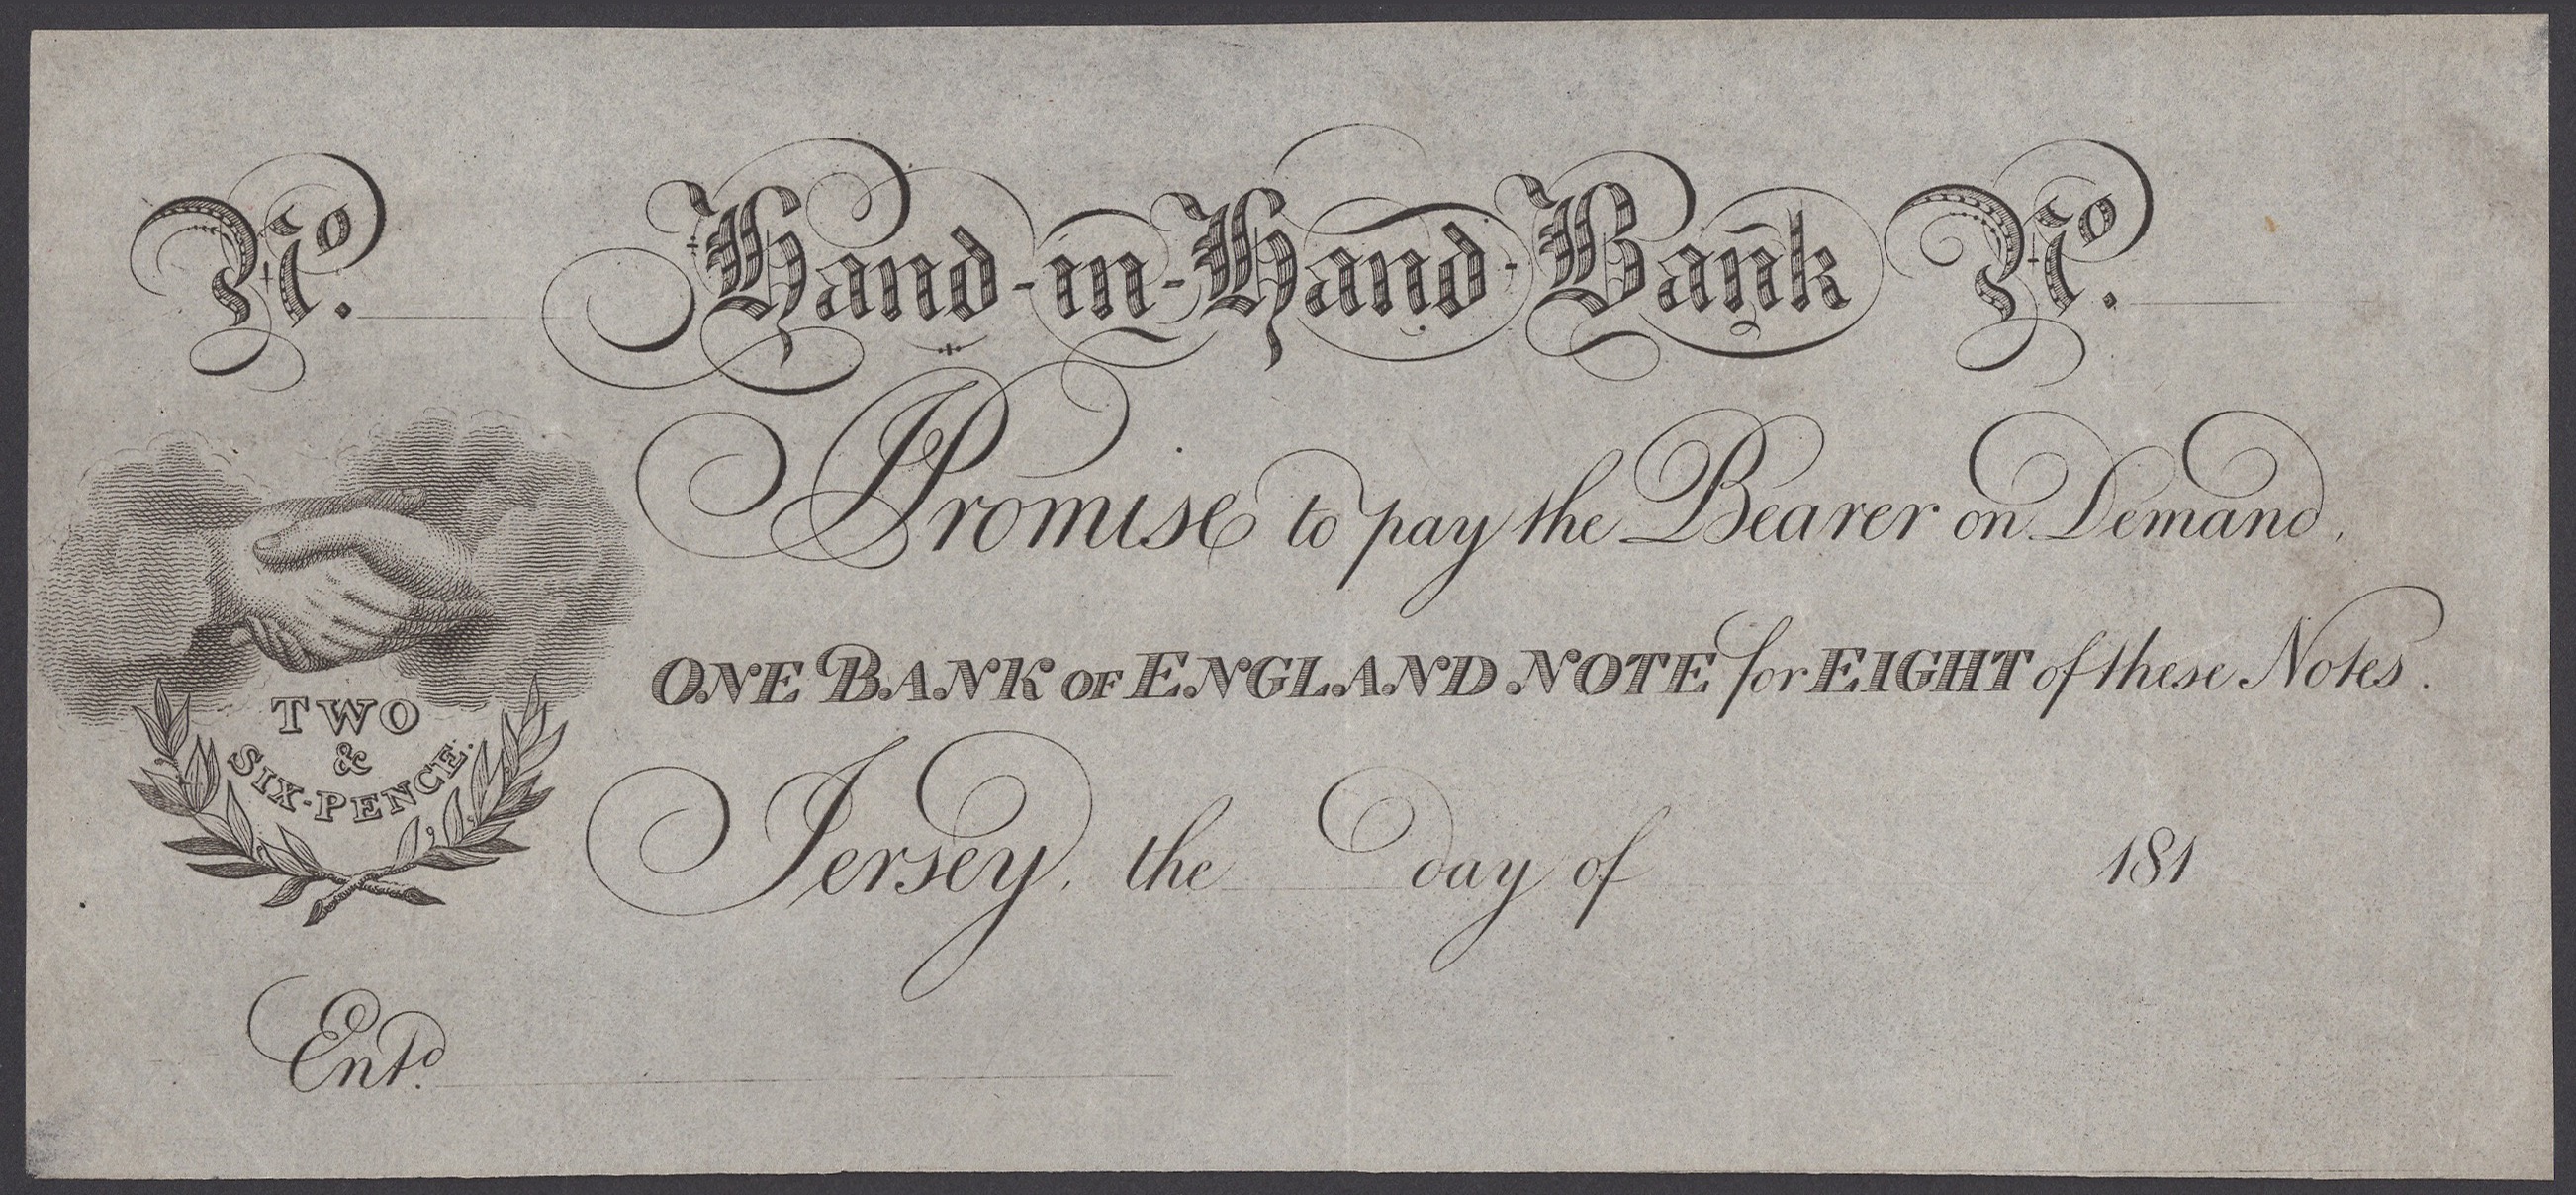 No. Hand-in-Hand-Bank No.
I Promise to pay the Bearer on Demand,
ONE BANK OF ENGLAND NOTE for EIGHT of these Notes.
TWO
&
SIX-PENCE.
Jersey, the day of 181
Entd.